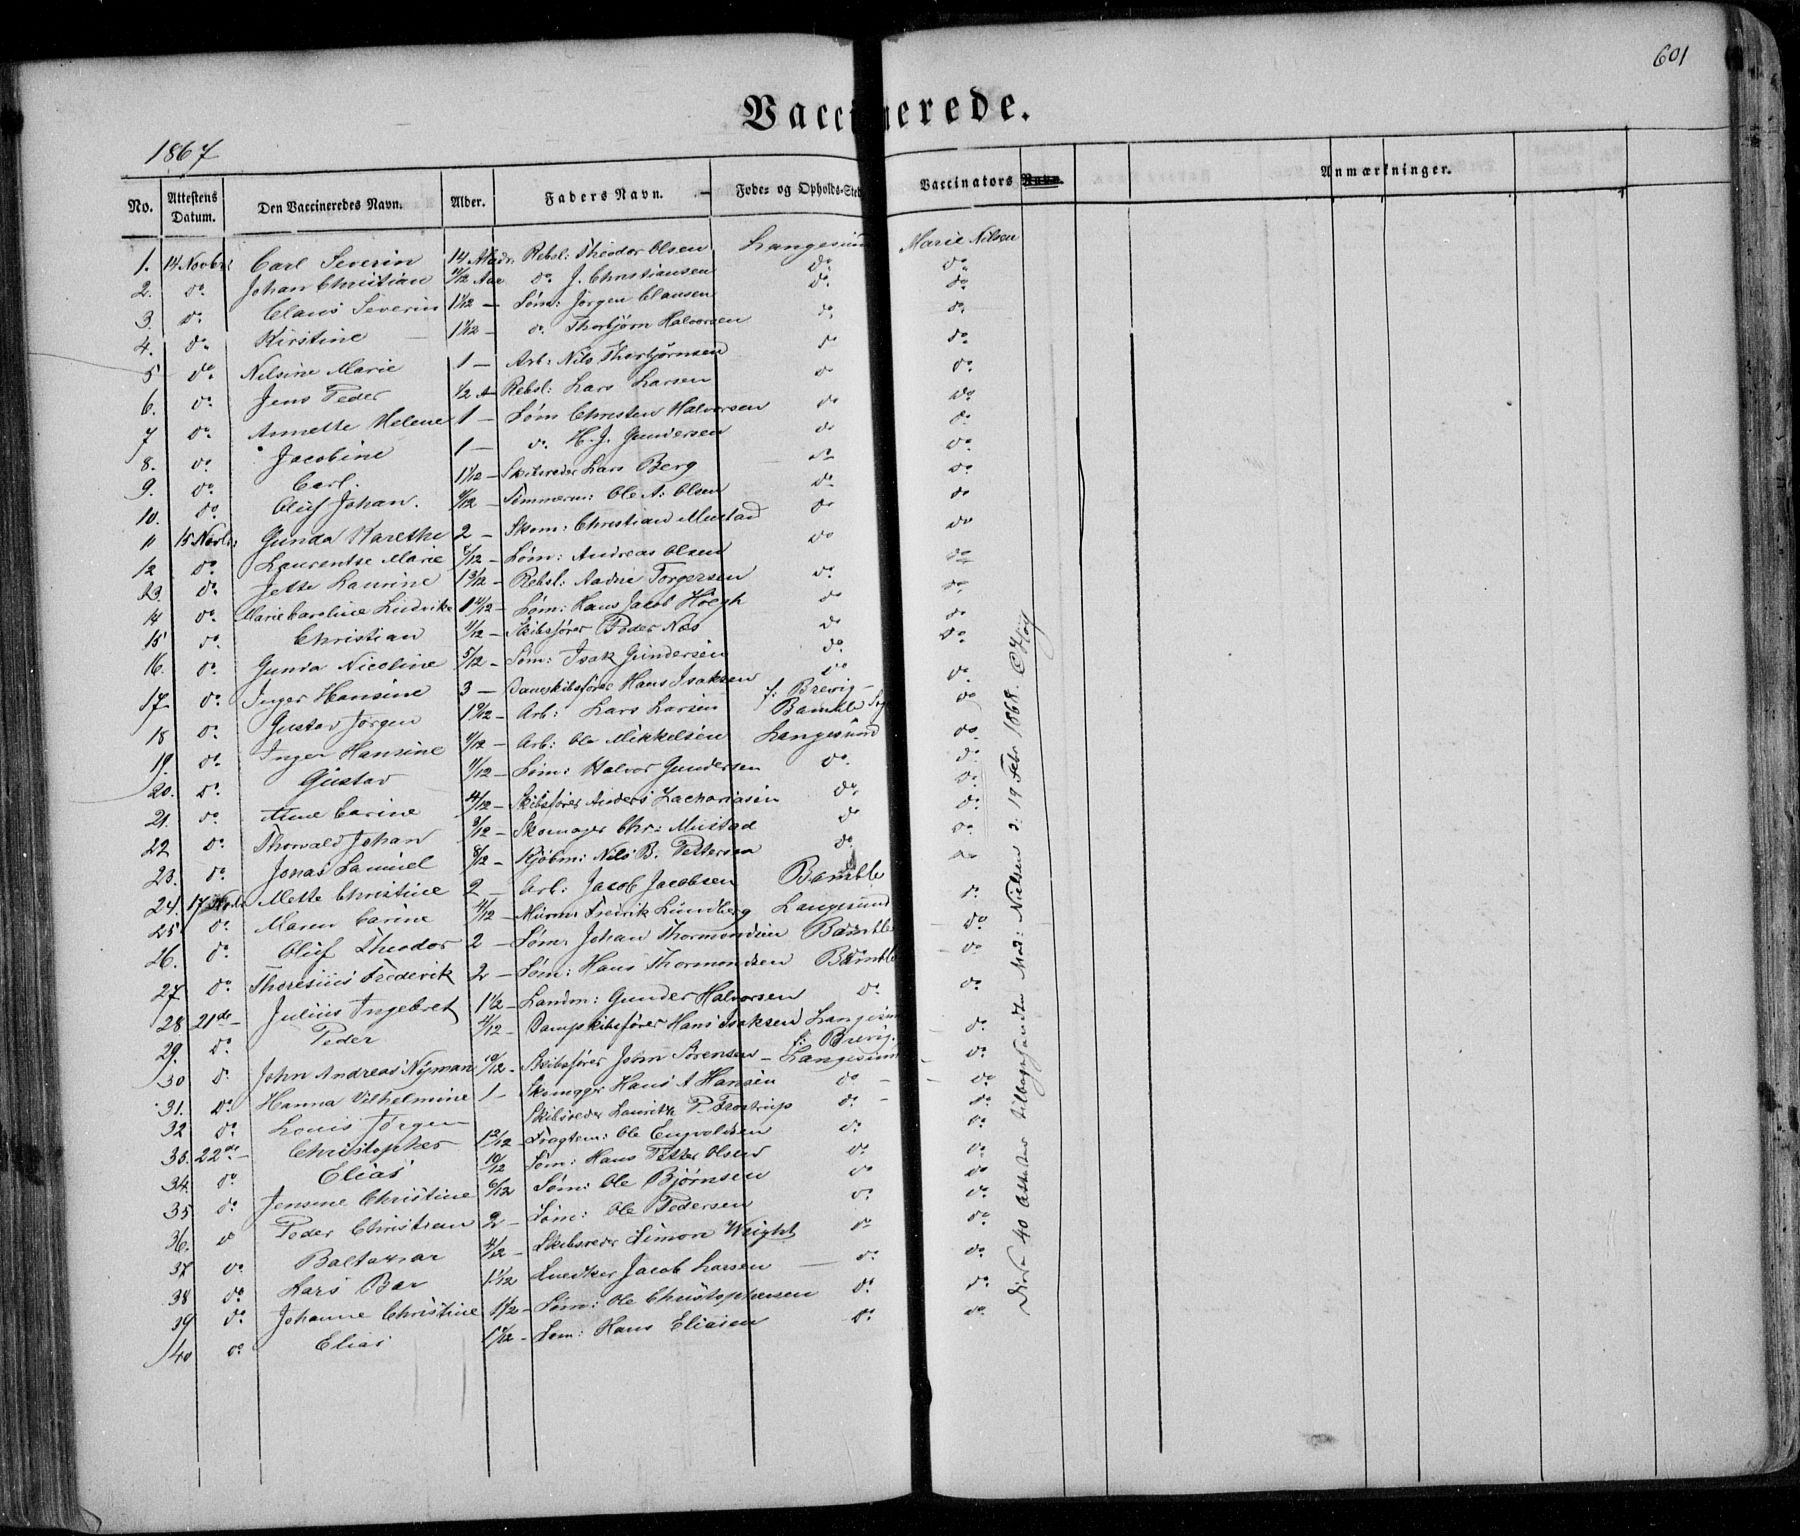 601
Vaccinerede.
1867
No. Attestens Datum. Den Vaccineredes Navn. Alder. Faders Navn. Føde- og Opholds-Sted Vaccinators Navn. Anmærkninger.
1. 14 Novbr: Carl Severin Rebsl: Theodor Olsen Langesund Marie Nilsen
2. do Johan Christian 11/12 Aar do J. Christiansen do do
3. do Claus Severin Søm: Jørgen Clausen do do
4. do Kirstine do Thorbjørn Halvorsen do do
5 do Nilsine Marie 1 — Arb: Nils Thorbjørnsen do do
6. do Jens Peder 1/2 A Rebsl: Lars Larsen do do
7 do Annette Helene 1 — Søm Christen Halvorsen do do
8. do Jacobine 1 — do H. J. Gundersen do do
9. do Carl. Skibsreder Lars Berg do do
10. do Oluf Johan. Tømmerm: Ole A: Olsen do do
11 15 Novbr: Gunda Karethe 2 — Skom: Christian Mustad do do
12 do Laurentse Marie Søm: Andreas Olsen do do
23. do Jette Laurine Rebsl: Aadne Torgersen do do
14 do Marie Caroline Ludvike Søm: Hans Jacob Höegh do do
15 do Christian 11/12 — Skibsfører Peder Næs do do
16. do Gunda Nicoline 5/12 — Søm: Isak Gundersen do do
17 do Inger Hansine 3 — Dampskibsfører Hans Isaksen f: Brevig — do
18 do Gustav Jørgen Arb: Lars Larsen Bamble Sog do
19. do Inger Hansine Arb: Ole Mikkelsen Langesund do
20. do Gustav 11/12 — Søm: Halvor Gundersen do do
21. do Anne Carine Skibsfører Anders Zachariasen do do
22 do Thorvald Johan Skomager Chr: Mustad do do
23. do Jonas Samuel 8/12 — Kjøbm: Nils B. Pettersen do do
24. 17 Novbr Mette Christine 2 — Arb: Jacob Jacobsen Bamble do
25 do Maren Carine Murm: Fredrik Lundberg Langesund do
26. do Oluf Theodor 2 — Søm: Johan Thormondsen Bamble do
27 do Thoresius Frederik 2 — Søm: Hans Thormondsen Bamble do
28 21de — Julius Ingebret 1 1/2 — Landm: Gunder Halvorsen do
29. do Peder Dampskibsfører Hans Isaksen Langesund f: Brevig. do
30 do John Andreas Nyman 10/12 — Skibsfører John Sørensen — Langesund do
31. do Hanna Vilhelmine 1 — Skomager Hans A Hansen do do
32 do Louis Jørgen Skibsreder Lauritz P. Frostrup do do
33. 22de — Christopher Fragtem: Ole Engvoldsen do do
34. do Elias 10/12 Søm: Hans Petter Olsen do do
35 do Jensine Christine 6/12 Søm: Ole Bjørnsen do do
36. do Peder Christian 2 — Søm: Ole Pedersen do do
37 do Baltazar Skibsreder Simon Wright do do
38 do Lars Bar Snedker Jacob Larsen do do
39 do Johanne Christine 1 1/2 — Søm: Ole Christophersen do do
40 do Elias Søm: Hans Eliasen do do
Disse 40 Attester tilbagesendte Mad: Nielsen d. 19 Febr 1868. C Høy